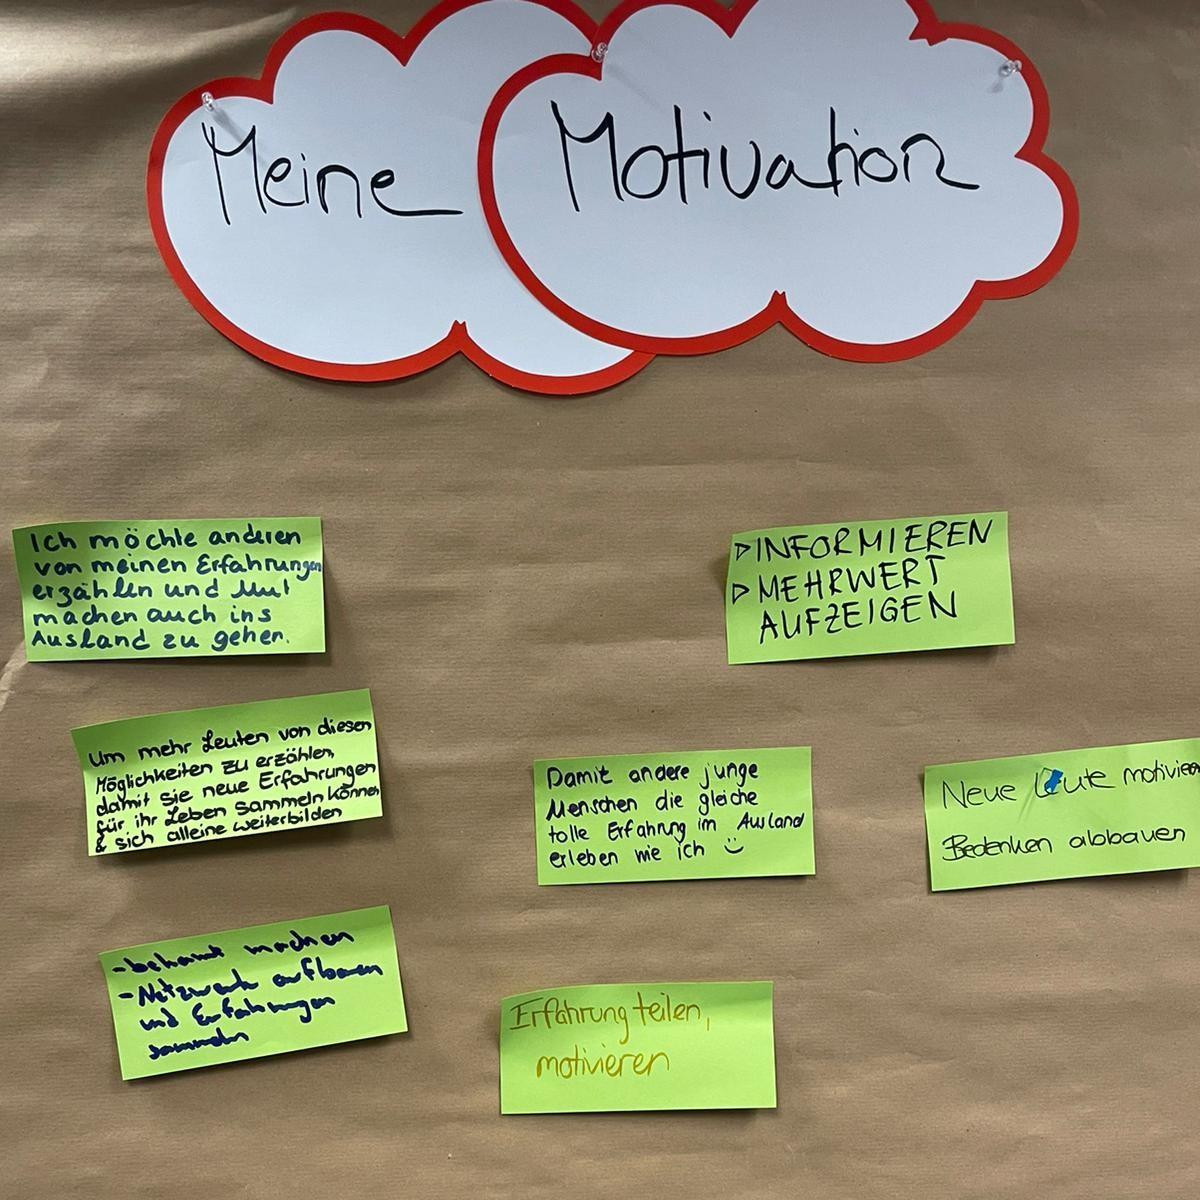 Meine Motivation
Ich möchte anderen
von meinen Erfahrungen
erzählen und Mut
machen auch ins
Ausland zu gehen.
▷ INFORMIEREN
▷ MEHRWERT
AUFZEIGEN
Um mehr Leuten von diesen
Möglichkeiten zu erzählen,
damit sie neue Erfahrungen
für ihr Leben sammeln können
& sich alleine weiterbilden
Damit andere junge
Menschen die gleiche
tolle Erfahrung im Ausland
erleben wie ich ☺
Neue Leute motivieren
Bedenken abbauen
- bekannt machen
- Netzwerk aufbauen
und Erfahrungen
sammeln
Erfahrung teilen,
motivieren